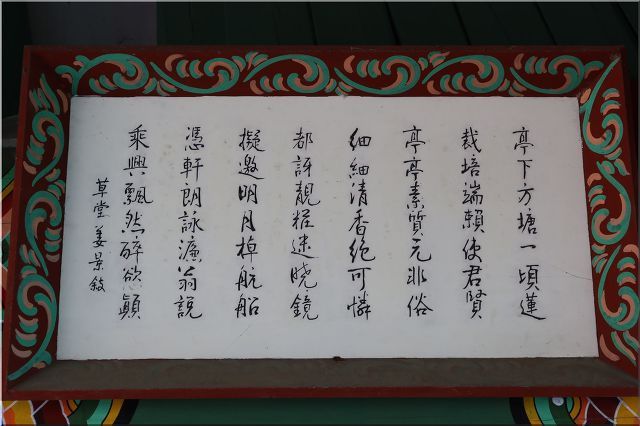 亭下方塘一頃蓮
栽培端賴使君賢
亭亭素質元非俗
細細清香絶可憐
都訝靚粧迷曉鏡
擬邀明月棹航船
憑軒朗詠濂翁説
乘興飄然醉欲顚
草堂姜景敍